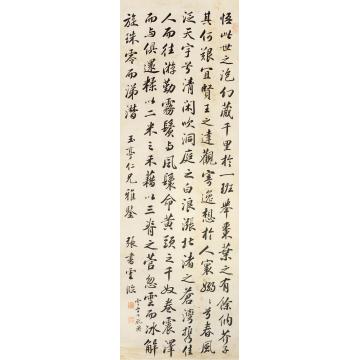 悟此世之泡幻藏千里於一班舉棗葉之有餘納芥子
其何艱宜賢王之達觀寄逸想於人寰嫋兮春風
泛天宇兮清閑吹洞庭之白浪漲北渚之蒼灣攜佳
人而往游勤霧鬢與風鬟命黃頭之千奴卷震澤
而與俱還糅以二米之禾藉以三脊之菅忽雲而冰解
旋珠零而涕潸
玉亭仁兄雅鑒 張書雲臨